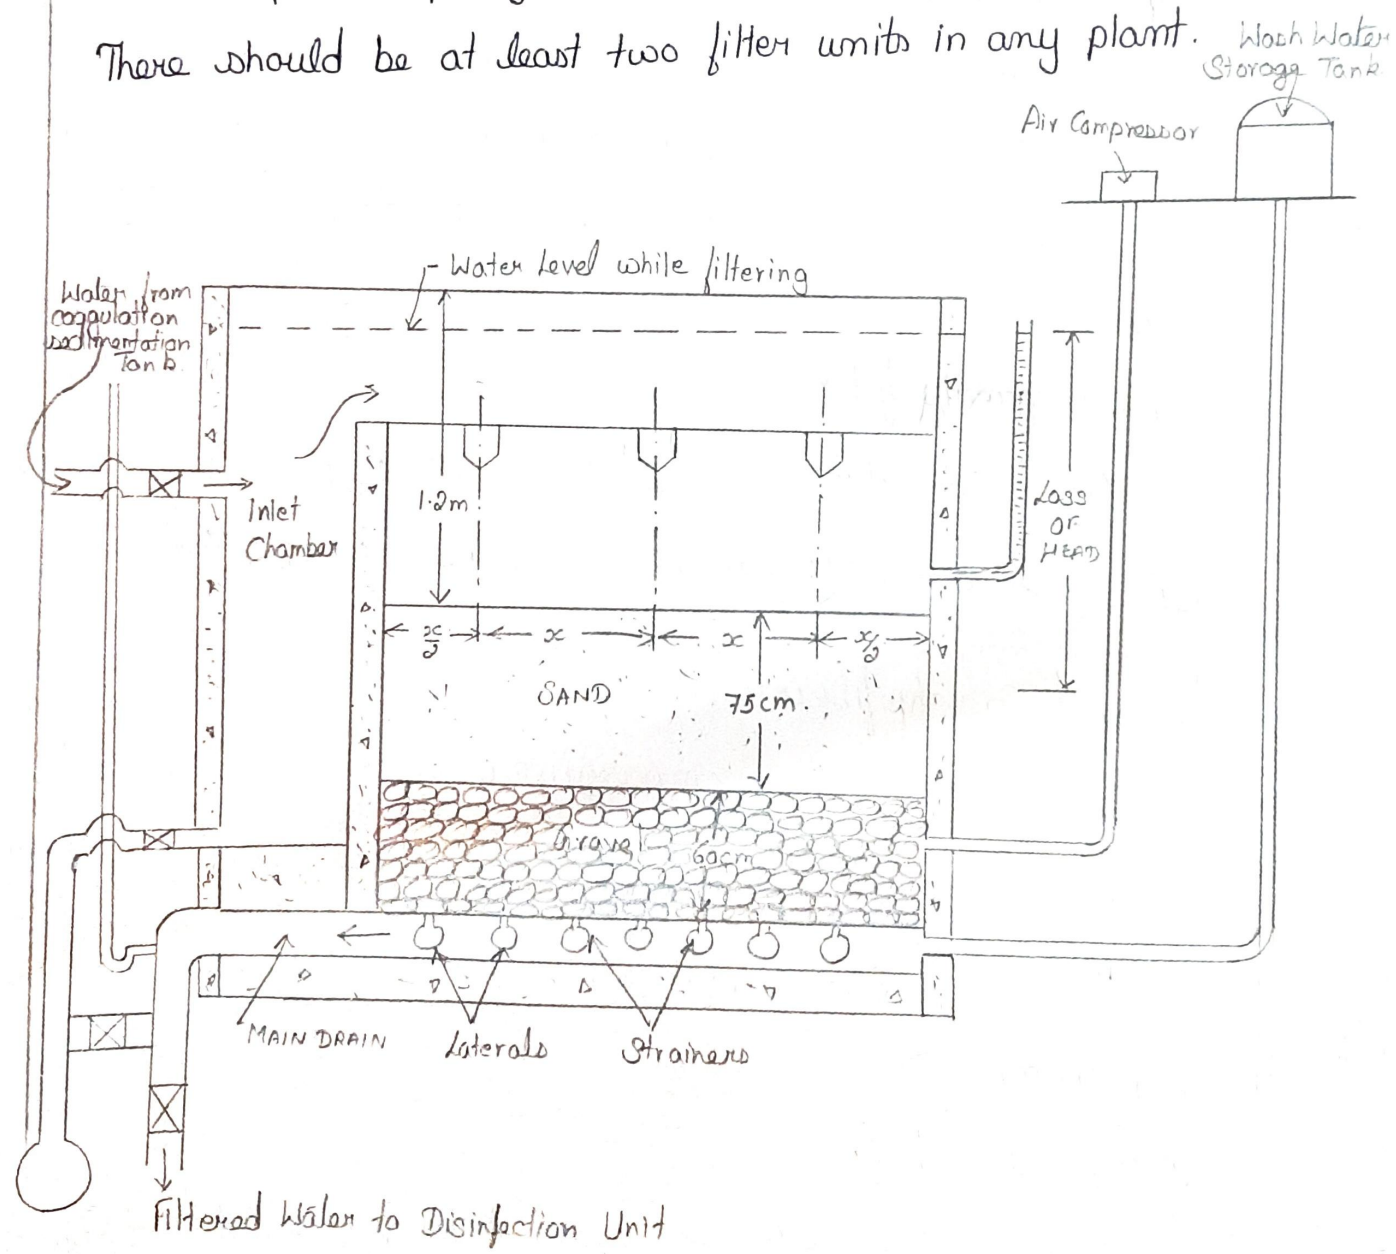 There should be at least two filter units in any plant.
Wash Water
Storage Tank
Air Compressor
Water Level while filtering
Water from
coagulation
sedimentation
Tank
1.2m
Inlet
Chamber
Loss
OF
HEAD
x/2
x
x
x/2
SAND
75cm.
Gravel
60cm
MAIN DRAIN
Laterals
Strainers
Filtered Water to Disinfection Unit